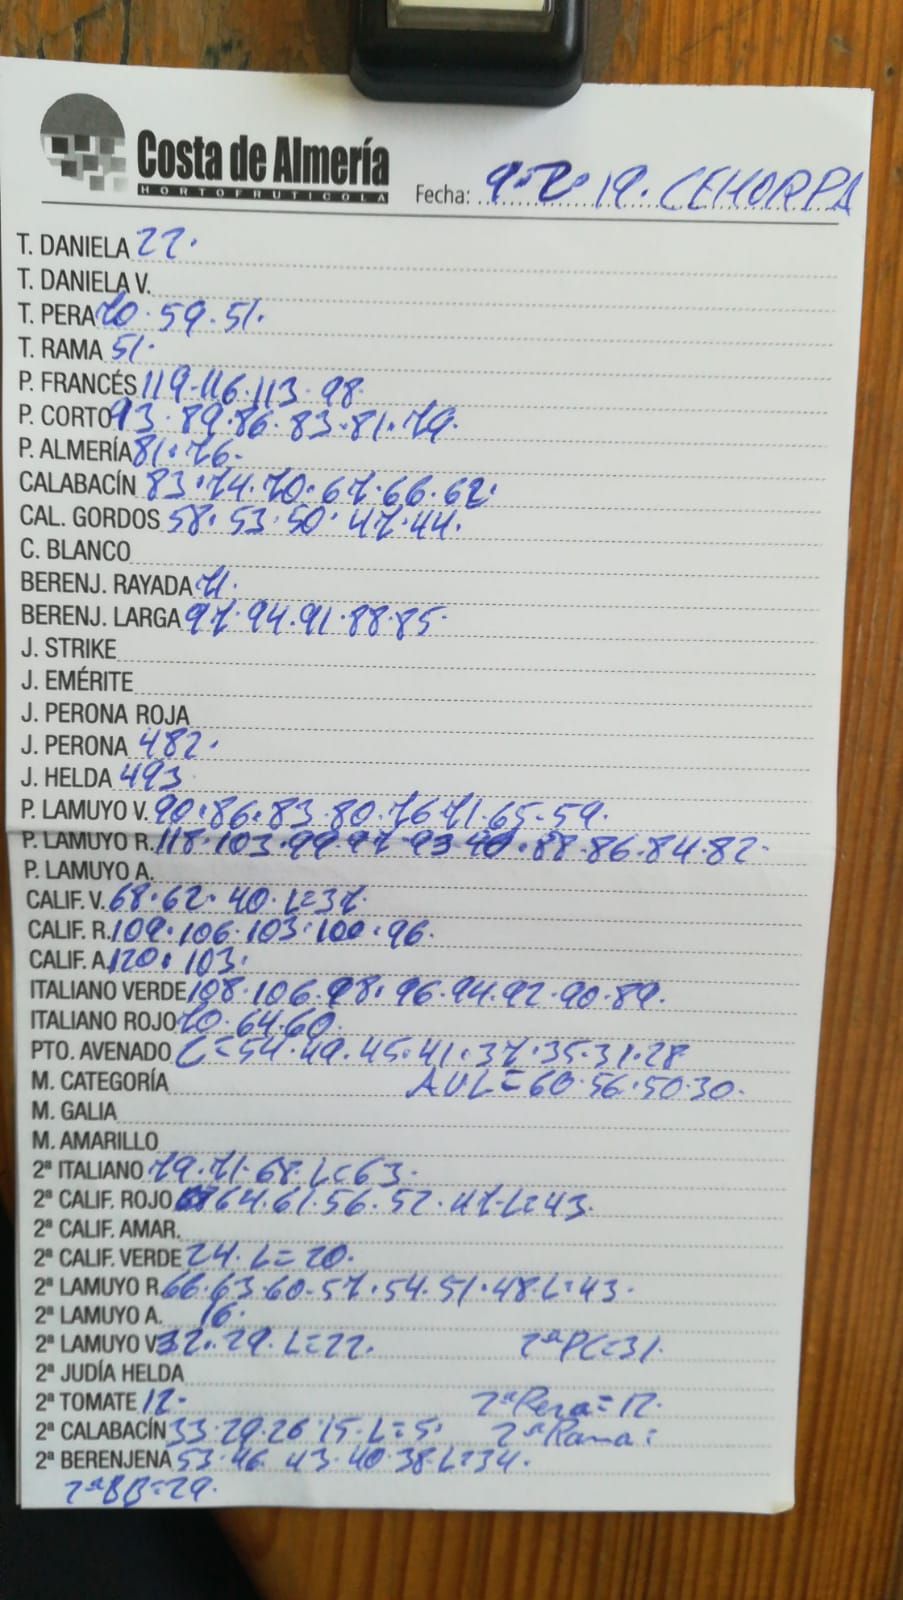 Costa de Almería
HORTOFRUTICOLA
Fecha: 9-2-19. CEHORPA
T. DANIELA 22.
T. DANIELA V.
T. PERA 70.59.51.
T. RAMA 51.
P. FRANCÉS 119.116.113.98.
P. CORTO 93.89.86.83.81.79.
P. ALMERÍA 81.76.
CALABACÍN 83.74.70.67.66.62.
CAL. GORDOS 58.53.50.47.44.
C. BLANCO
BERENJ. RAYADA 71.
BERENJ. LARGA 97.94.91.88.85.
J. STRIKE
J. EMÉRITE
J. PERONA ROJA
J. PERONA 482.
J. HELDA 493
P. LAMUYO V. 90.86.83.80.76.71.65.59.
P. LAMUYO R. 118.103.99.97.93.90.88.86.84.82.
P. LAMUYO A.
CALIF. V. 68.62.40.L=37.
CALIF. R. 109.106.103.100.96.
CALIF. A. 120.103.
ITALIANO VERDE 108.106.98.96.94.92.90.89.
ITALIANO ROJO 70.64.60.
PTO. AVENADO C=54.49.45.41.37.35.31.28
M. CATEGORÍA AVL=60.56.50.30.
M. GALIA
M. AMARILLO
2ª ITALIANO 79.71.68.L=63.
2ª CALIF. ROJO 64.61.56.52.47.L=43.
2ª CALIF. AMAR.
2ª CALIF. VERDE 24.L=20.
2ª LAMUYO R. 66.63.60.57.54.51.48.L=43.
2ª LAMUYO A. 16.
2ª LAMUYO V. 32.29.L=22. 2ª PC=31.
2ª JUDÍA HELDA
2ª TOMATE 12. 2ª Pera=12.
2ª CALABACÍN 33.29.26.15.L=5. 2ª Rama:
2ª BERENJENA 53.46.43.40.38.L=34.
2ª BB=29.